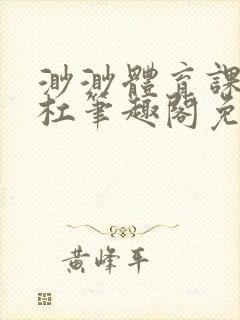 渺渺體育課
杜筆趣閣免
黃峰平